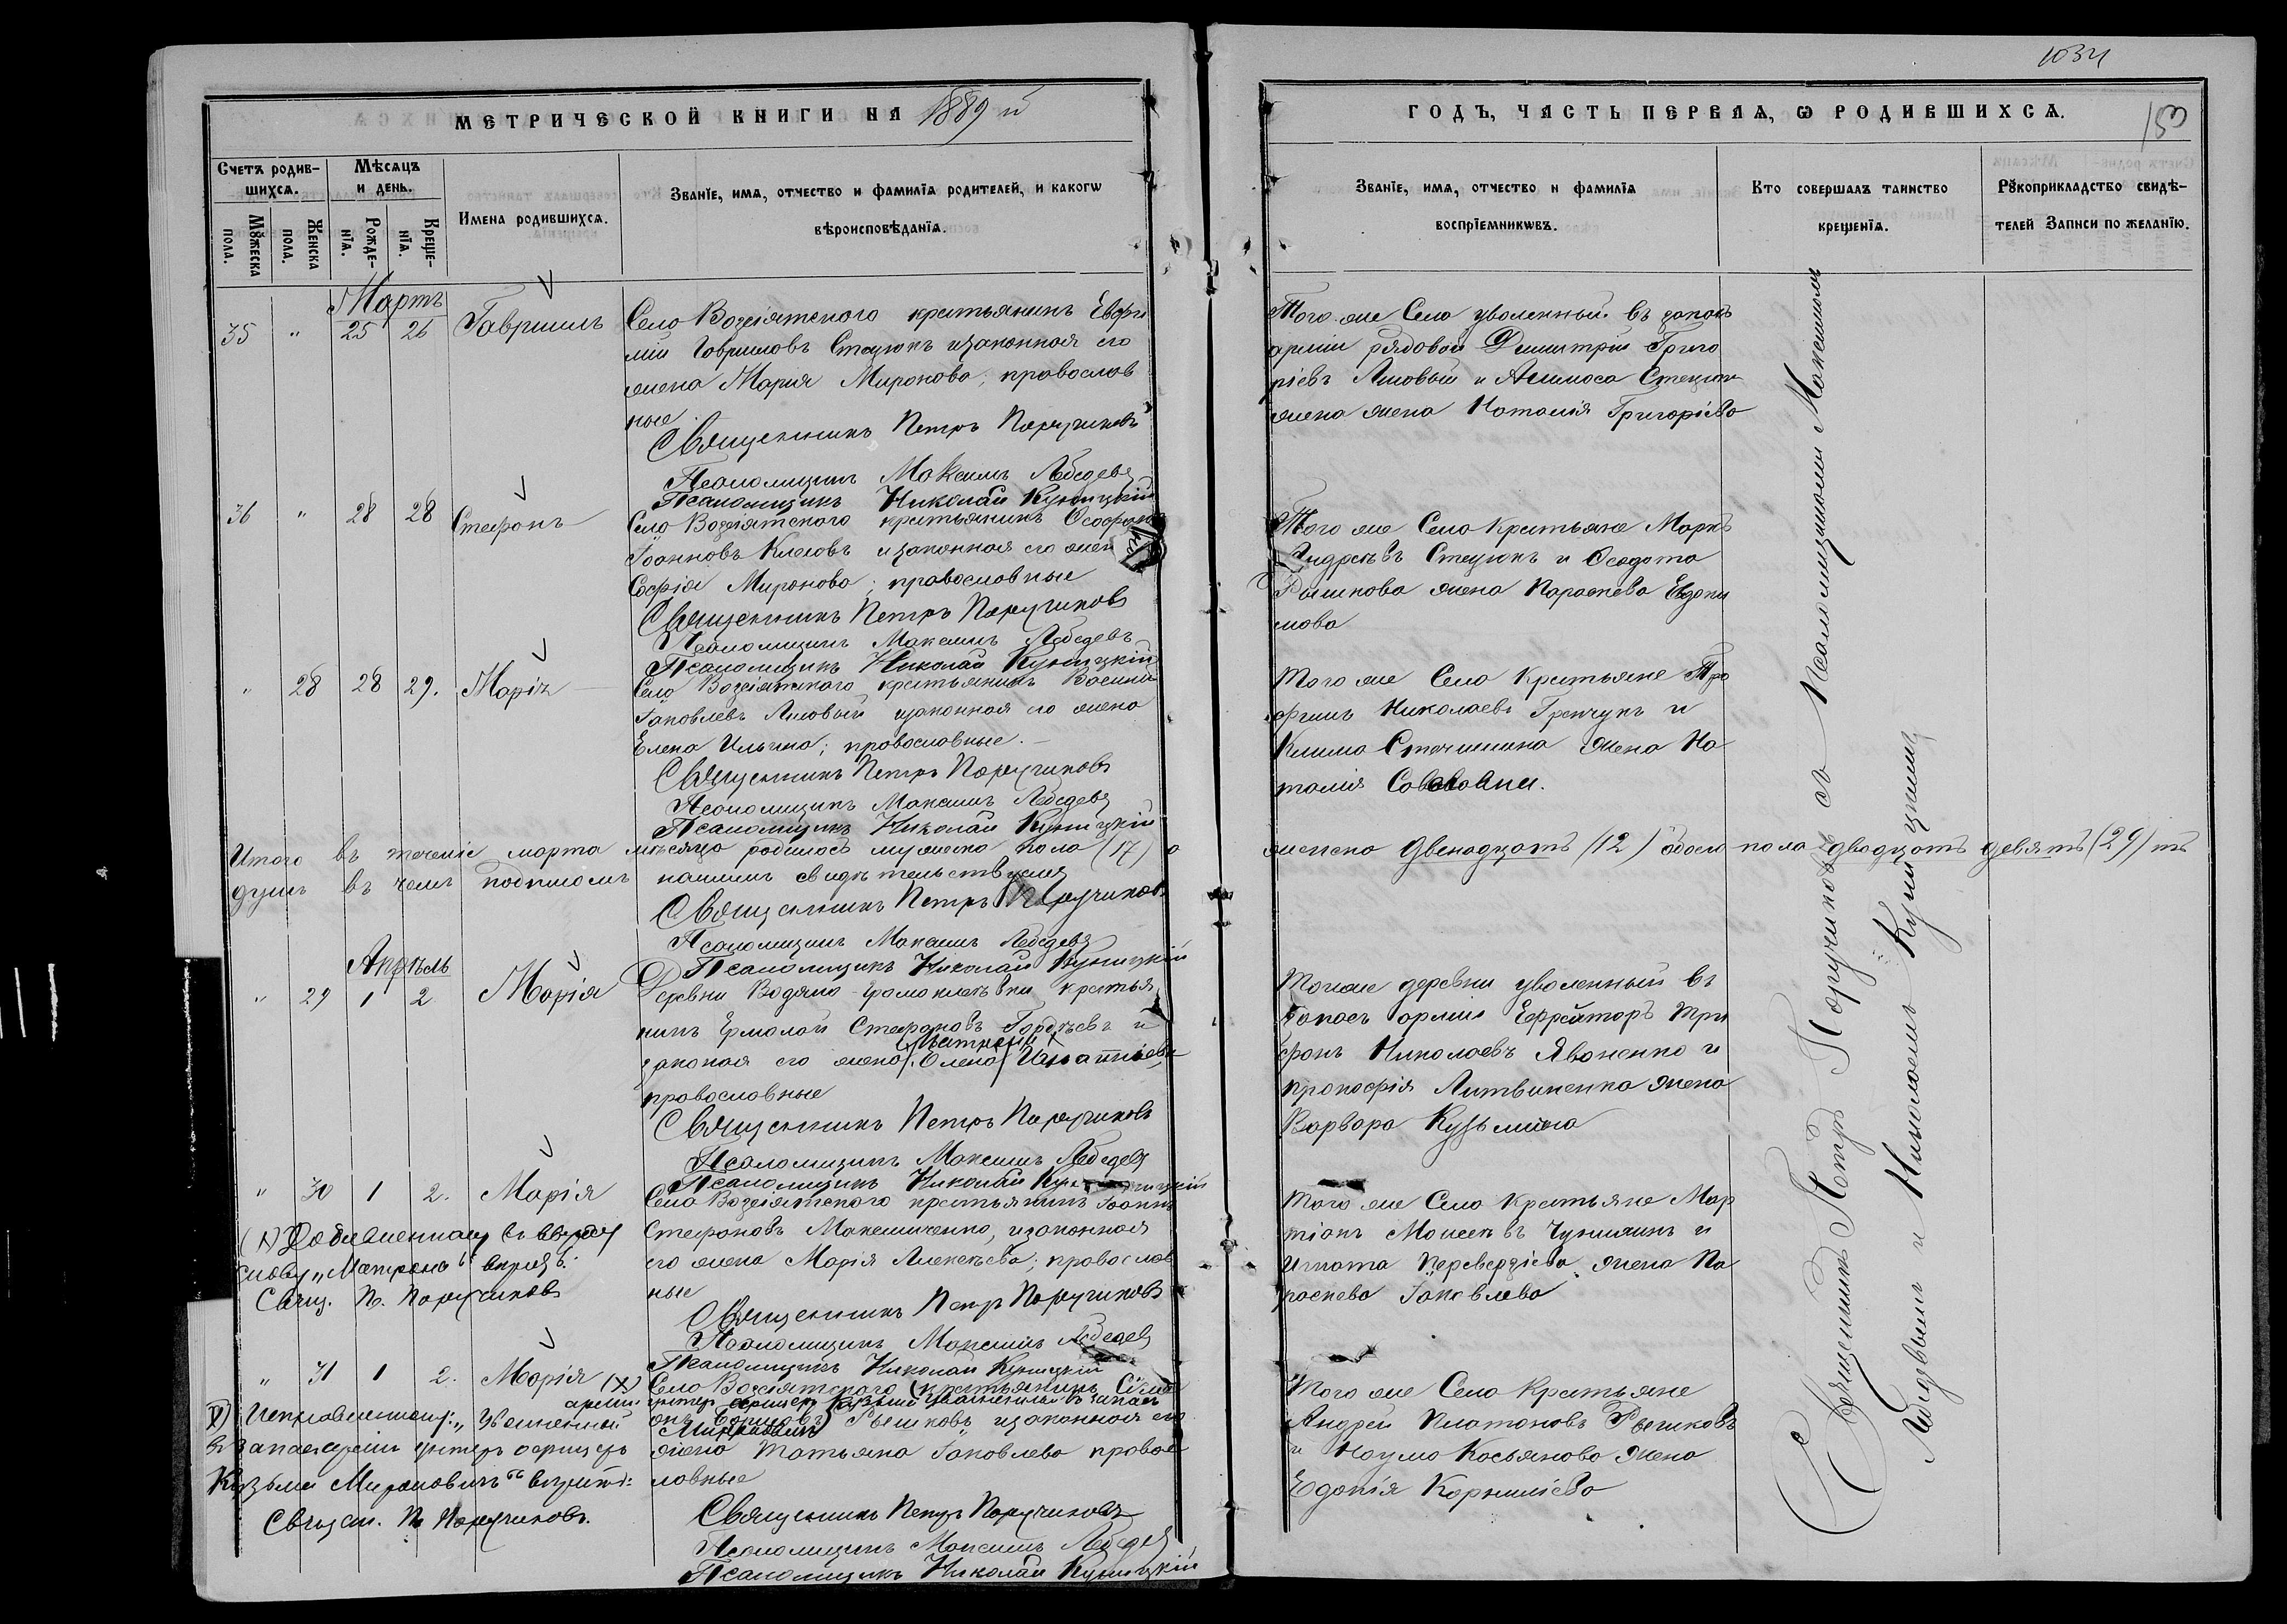 1034
153
МЕТРИЧЕСКОЙ КНИГИ НА 1889 й
ГОДЪ, ЧАСТЬ ПЕРВАѦ, Ѡ РОДИВШИХСѦ.
Счетъ родив-
шихсѧ.
Мѣсѧцъ
и день.
Мꙋжеска
пола.
Женска
пола.
Рожде-
нїѧ.
Креще-
нїѧ.
Имена родившихсѧ.
Званїе, имѧ, отчество и фамилїѧ родителей, и какогѡ
вѣроисповѣданїѧ.
Званїе, имѧ, отчество и фамилїѧ
воспрїемникѡвъ.
Кто совершалъ таинство
крещенїѧ.
Рꙋкоприкладство свидѣ-
телей Записи по желанїю.
Мартъ
35 " 25 26 Гавриилъ
Село Возсіятского крестьянинъ Евфи
мій Гавриловъ Стецюкъ изаконная его
жена Мария Миронова, православ
ные
Священникъ Петръ Поручиковъ
Псаломщикъ Максимъ Лебедевъ
Псаломщикъ Николай Куницкій
Того же Села уволенный въ запасъ
арміи рядовой Димитрій Григо
ріевъ Лисовый и Стецюка
жена Наталія Григоріева
36 " 28 28 Стефанъ
Село Возсіятского крестьянинъ
Іоанновъ изаконная его жена
Софія Миронова; православные
Священникъ Петръ Поручиковъ
Псаломщикъ Максимъ Лебедевъ
Псаломщикъ Николай Куницкій
Того же Села Крестьяне Маркъ
Андреевъ Стецюкъ и Федота
Рышкова жена Параскева Евдоки
мова
" 28 28 29. Марія
Село Возсіятского крестьянинъ Василій
Іаковлевъ Лисовый изаконная его жена
Елена Ильина; православные.
Священникъ Петръ Поручиковъ
Псаломщикъ Максимъ Лебедевъ
Псаломщикъ Николай Куницкій
Того же Села Крестьяне Тро
фимъ Николаевъ Гречукъ и
Клима жена На
талія
Итого въ теченіе марта мѣсяца родилось мужеска пола (17) а
женска двенадцать (12) обоего пола двадцать девять (29) ть
душъ въ чемъ подписомъ нашимъ свидѣтельствуемъ
Священникъ Петръ Поручиковъ
Псаломщикъ Максимъ Лебедевъ
Псаломщикъ Николай Куницкій
Апрѣль
" 29 1 2 Марія
Деревни Водяно- крестья
нинъ Ермолай Стефановъ Гордѣевъ и
законая его жена Олена Игнатіева
православные
Священникъ Петръ Поручиковъ
Псаломщикъ Максимъ Лебедевъ
Псаломщикъ Николай Куницкій
Тойже деревни уволенный въ
запасъ арміи Ефрейторъ Три
фонъ Николаевъ Яваненко и
прокофія Литвиненка жена
Варвара Кузьмина
" 30 1 2. Марія
Село Возсіятского крестьянинъ Іоаннъ
Стефановъ Максименко, изаконная
его жена Марія Алексѣева; православ
ные
Священникъ Петръ Поручиковъ
Псаломщикъ Максимъ Лебедевъ
Псаломщикъ Николай Куницкій
Того же Села Крестьяне Мар
тіанъ Моисеевъ и
Игната жена Па
раскева Іаковлева
(х) Добавленному
слову „Матрона“ вѣрить:
Свящ. П. Поручиковъ
" 31 1 2. Марія (х)
Село Возсіятского (крестьянинъ
Рышковъ изаконная его
Мироновичъ
жена Татьяна Іаковлева правос
лавные
Священникъ Петръ Поручиковъ
Псаломщикъ Максимъ Лебедевъ
Псаломщикъ Николай Куницкій
Того же Села Крестьяне
Андрей Платоновъ Рышковъ
и Наума Касьянова жена
Едокія Корниліева
(х) Исправленному: „Уволенной
въ запасъ арміи унтеръ офицеръ
Кузьма Мироновичъ“ вѣрить:
Священ. П. Поручиковъ.
Священникъ Петръ Поручиковъ съ Псаломщиками Максимомъ
Лебедевымъ и Николаемъ Куницкимъ